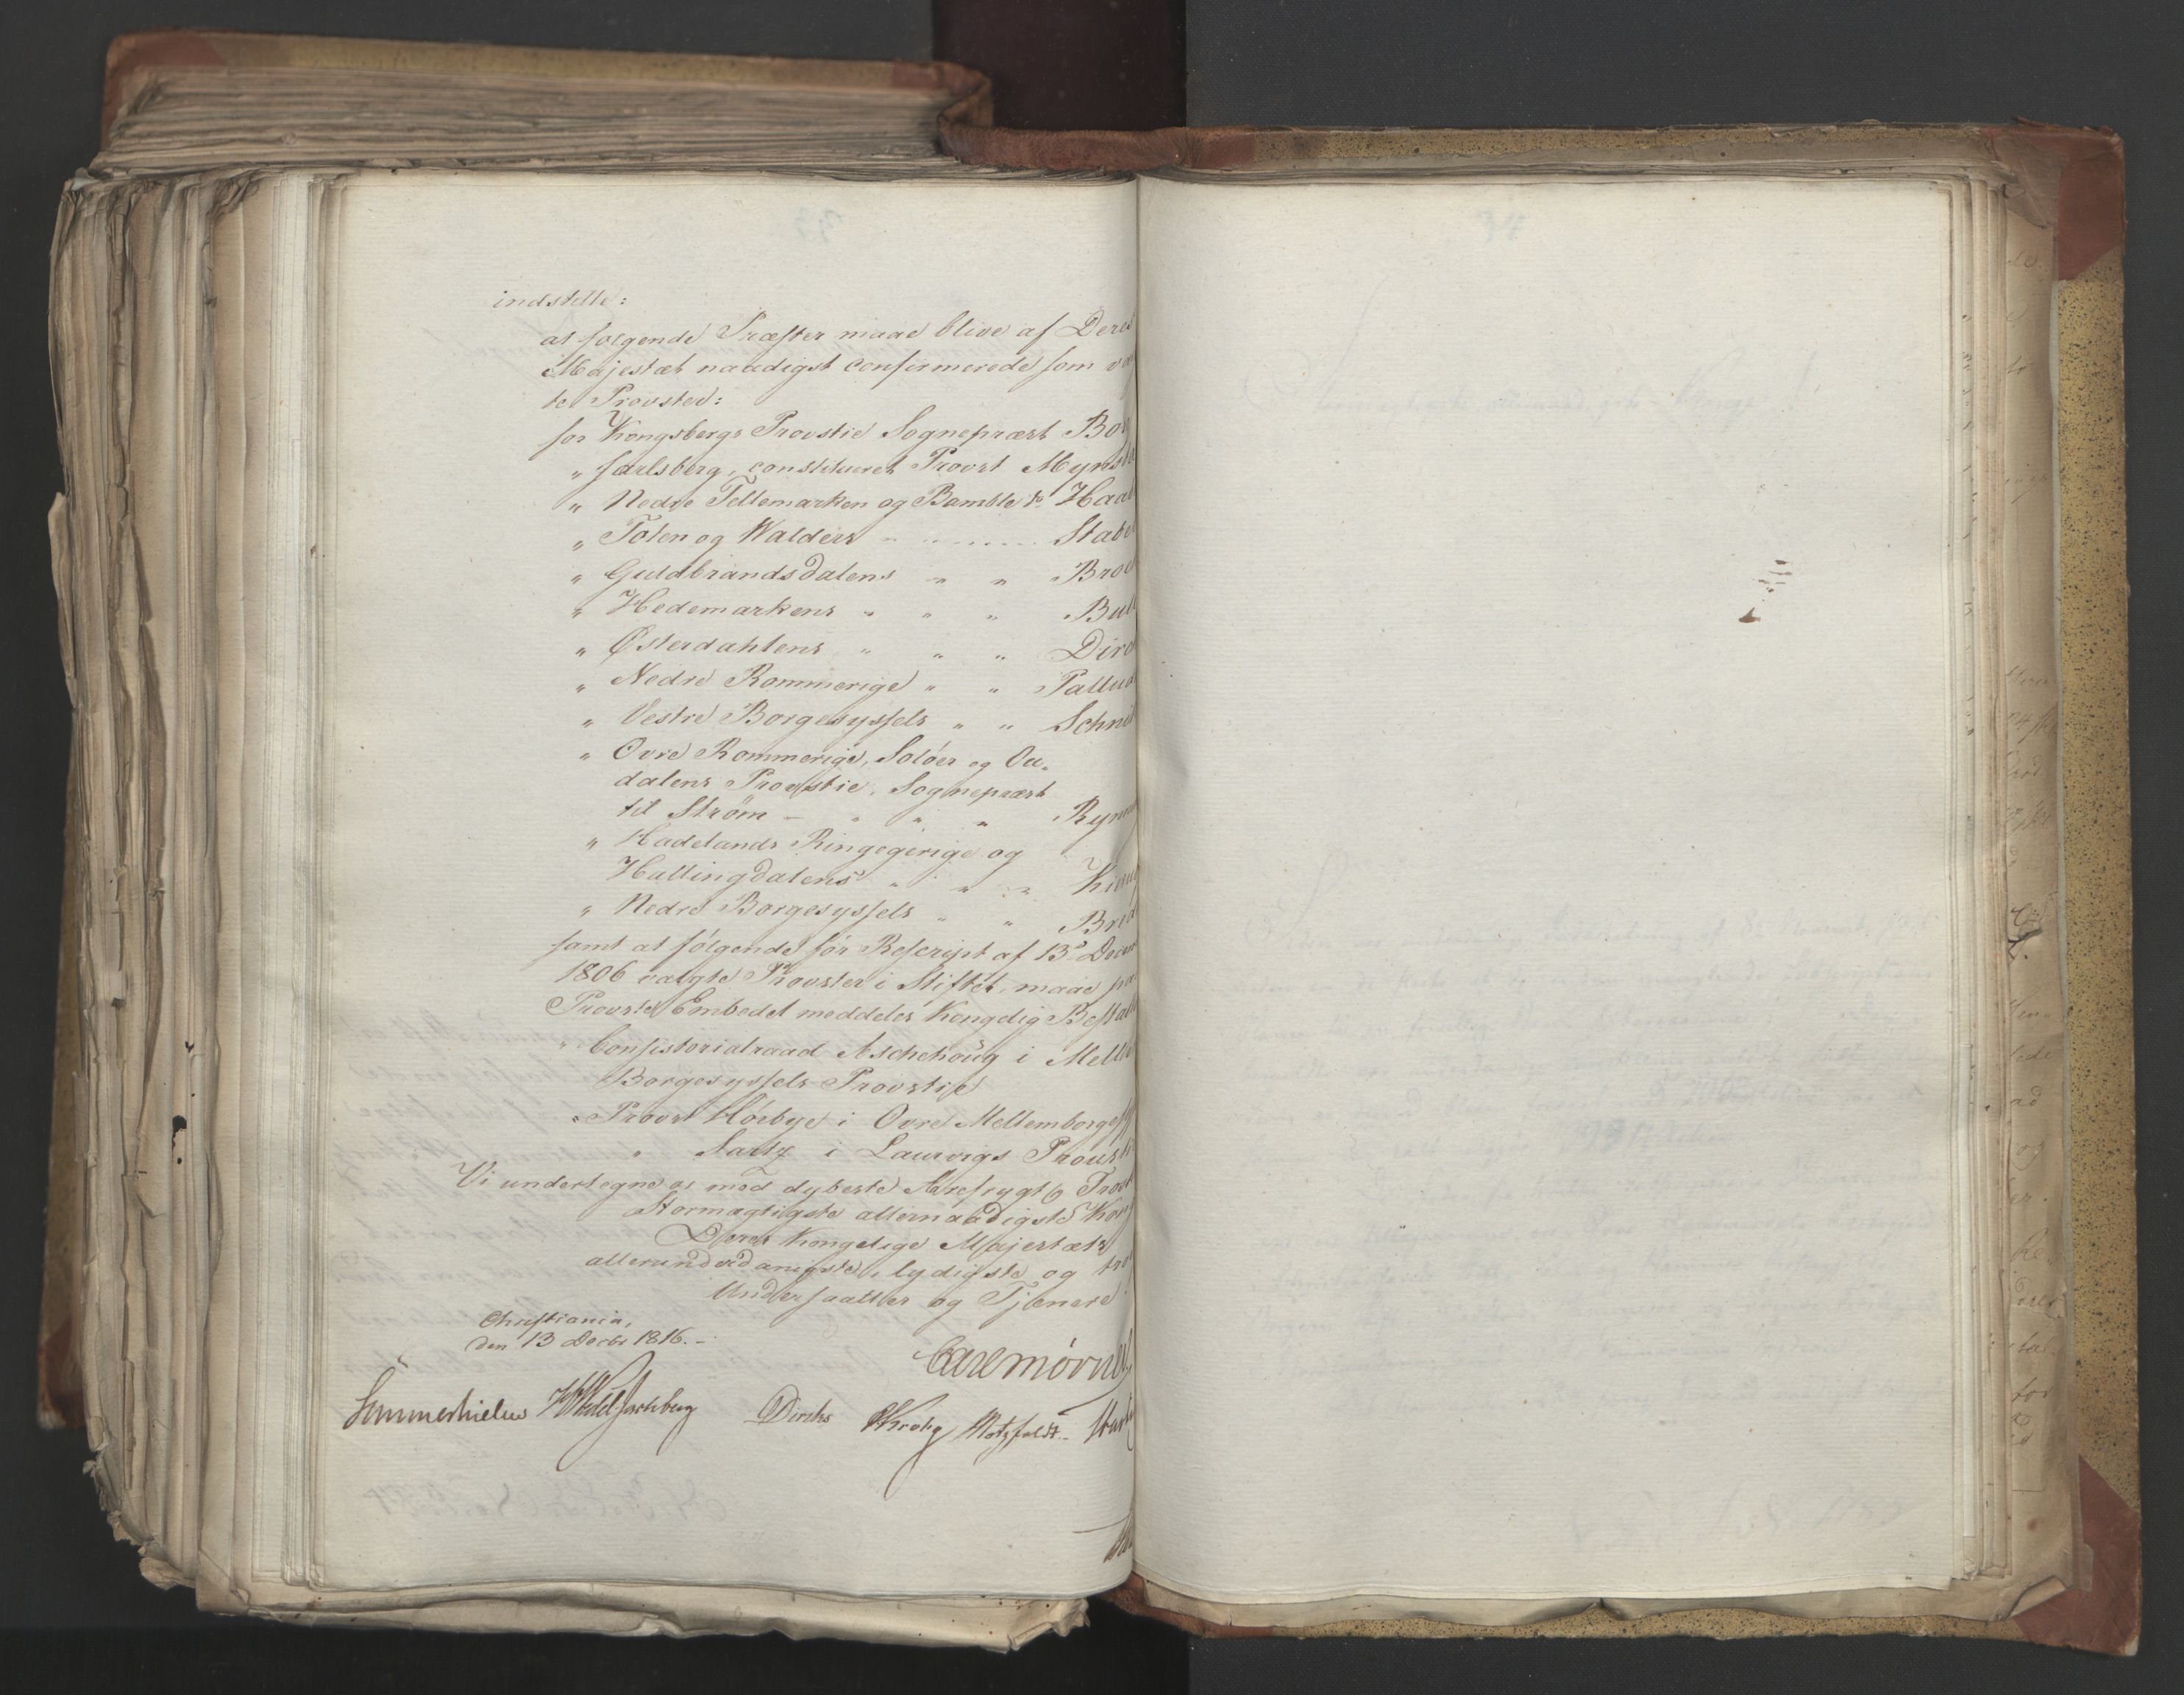 indstille:
at følgende Præster maae blive af Deres
Majestæt naadigst confirmerede som
te Provster:
for Kongsbergs Provstie Sognepræst
" Jarlsberg, constitueret Provst Mynst
" Nedre Tellemarken og Bamble do Haa
" Toten og Walders " " Stabe
" Guldbrandsdalens " " Bro
" Hedemarkens " " " Bul
" Østerdahlens " " " Dir
" Nedre Rommerige " " Pallu
" Vestre Borgesyssels " " Schni
" Ovre Rommerige, Soløer og Ou-
dalens Provstie, Sognepræst
til Strøm - " " " Ryn
" Hadelands Ringegerige og
Hallingdalens " " " Ki
" Nedre Borgesyssels " " Br
samt at følgende før Rescript af 13de Decem
1806 valgte Provster i Stiftet, maae paa
Provste Embedet meddeles Kongelig Bestall
" Consistorialraad Aschehoug i Melle
Borgesyssels Provstie
" Provst Hørbye i Ovre Mellemborges
" Sartz i Laurvigs Provsti
Vi undertegne os med dybeste Ærefrygt og Trosk
Stormægtigste allernaadigste Kong
Deres Kongelige Majestæts
allerunderdanigste, lydigste og tro
Undersaatter og Tjenere
Christiania,
den 13 Decbr 1816. -
Carl Mörner
Sommerhielm HWedelJarlsberg Diriks CKrohg Motzfeldt